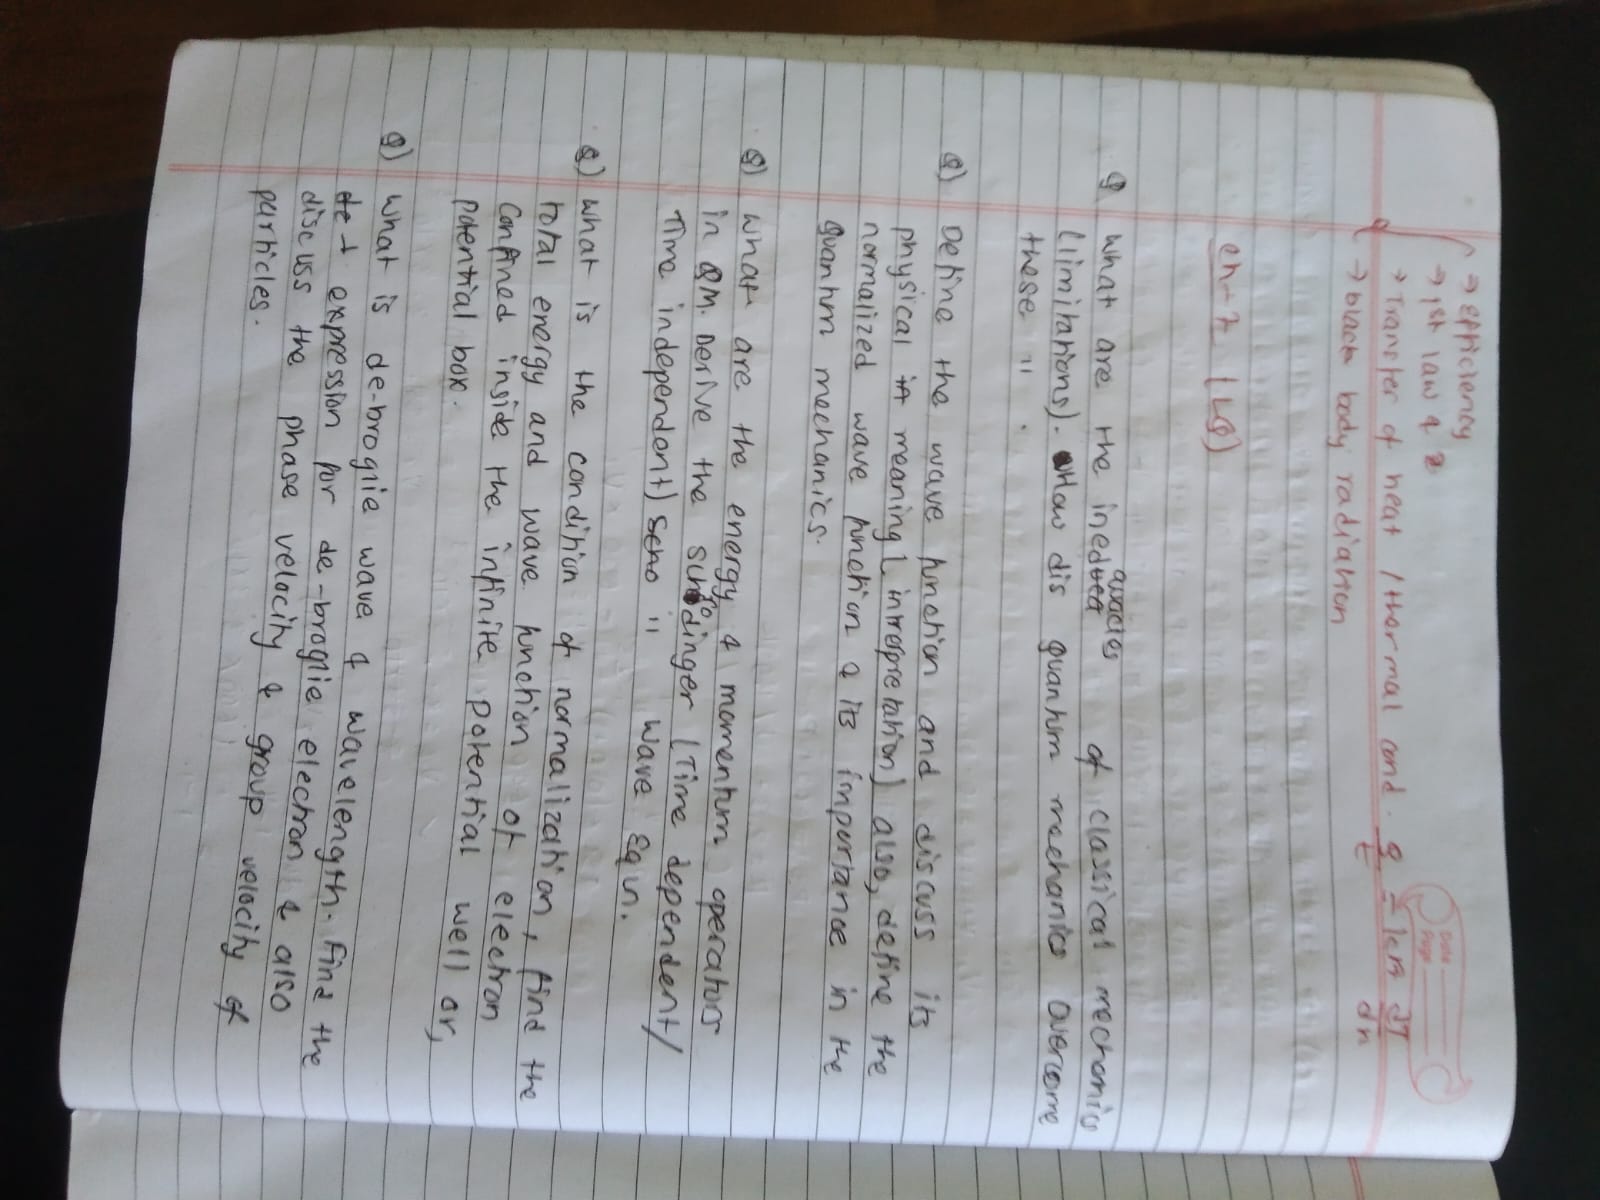 → efficiency
→ 1st law & 2
→ Transfer of heat / thermal cond. Q/t = -kA dT/dn
Q → black body radiation
Date
Page
ch-2 (LQ)
Q What are the inedquacies of classical mechanics
(limitations). How dis quantum mechanics overcome
these ".
Q) Define the wave function and discuss its
physical meaning (interpretation) also, define the
normalized wave function & its importance in the
quantum mechanics.
Q) what are the energy & momentum operators
in QM. Derive the schrodinger (Time dependent/
Time independent) " wave Eqn.
Q) what is the condition of normalization, find the
total energy and wave function of electron
confined inside the infinite potential well or,
potential box.
Q) what is de-brogie wave & wavelength. Find the
expression for de-broglie electron & also
discuss the phase velocity & group velocity of
particles.